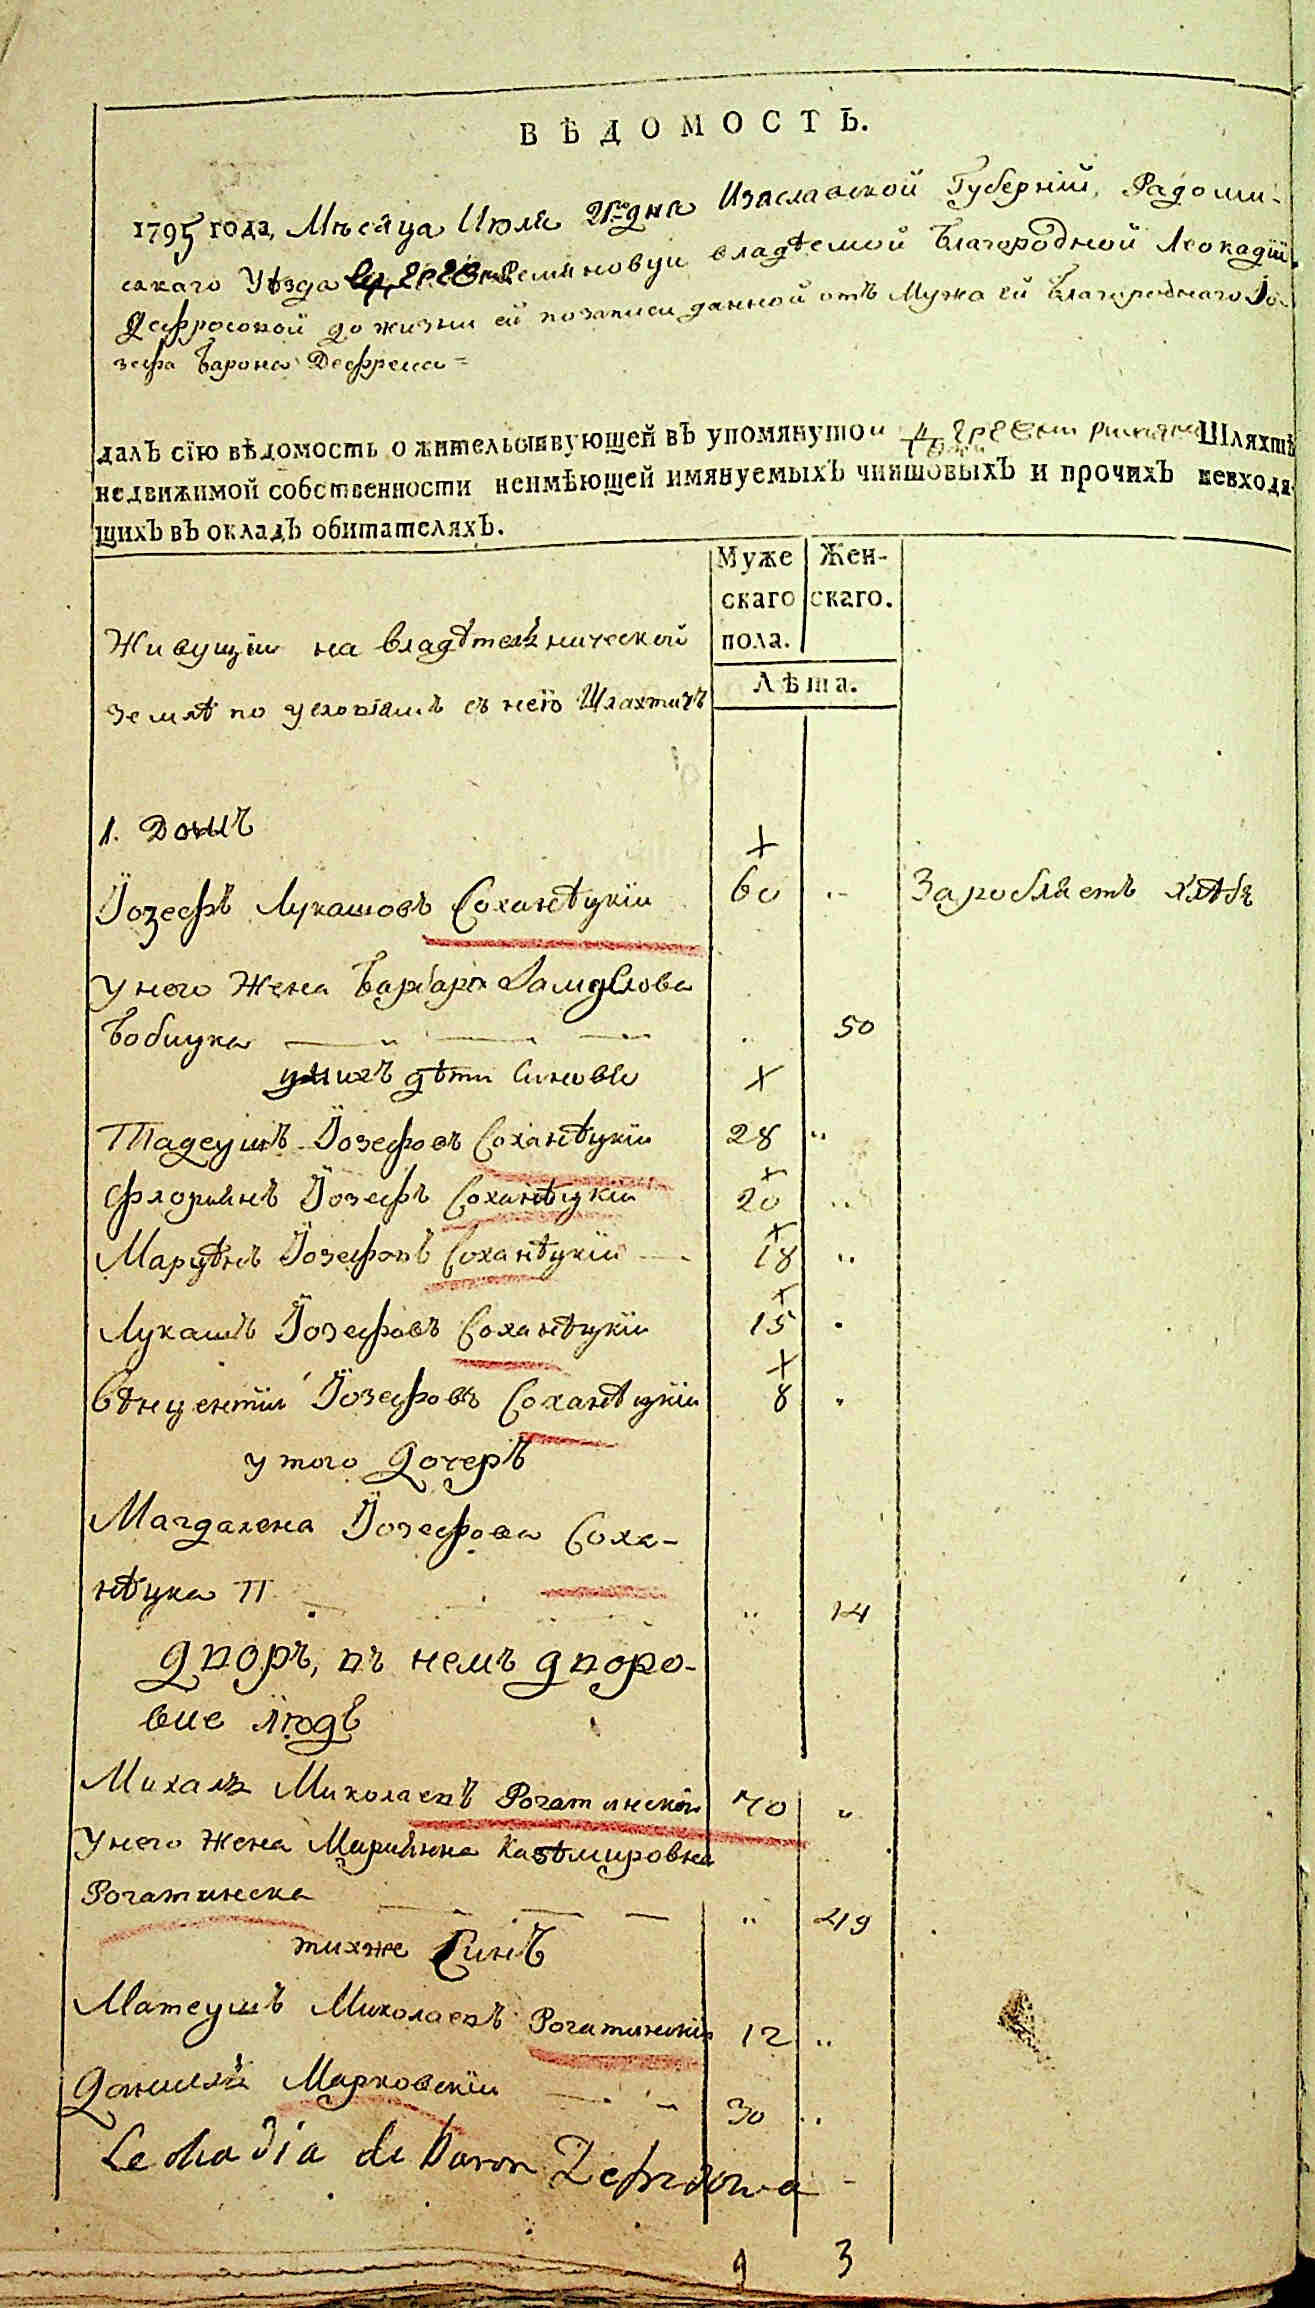 ВѢДОМОСТЬ.
1795 года, Мѣсяца Июля 21го дня Изяславской Губернiи, Радоми-
скаго Уѣзда владѣемой Благородной Леокадiи
Дефросовой до жизни ей по записи данной отъ Мужа ей Благороднаго Iо-
зефа Барона Дефреса =
далъ сїю вѣдомость о жительствующей въ упомянутои Шляхтѣ
недвижимой собственности неимѣющей имянуемыхъ чиншовыхъ и прочихъ невходя-
щихъ въ окладъ обитателяхъ.
Муже Жен-
скаго скаго.
пола.
Лѣта.
Живущiи на владѣтельнической
землѣ по условiямъ съ нею Шляхтичъ
1. Домъ
Їозефъ Лукашовъ Соханѣцкiи 60 .. Заробляетъ хлѣбъ
у него Жена Барбара
Бобицка .. 50
у нихъ дѣти Синовѣ
Тадеушъ Їозефовъ Соханѣцкiи 28 ..
Флорианъ Їозефъ Соханѣцкiи 20 ..
Марцѣнъ Їозефовъ Соханѣцкiи 18 ..
Лукашъ Їозефовъ Соханѣцкiи 15 .
Вѣнцентiи Їозефовъ Соханѣцкiи 8 .
у того Дочеръ
Магдалена Їозефова Соха-
нѣцка .. 14
Дворъ, въ немъ дворо-
вие людѣ
Михалъ Миколаевъ Рогатинскiи 70 ..
У него Жена Мариянна Казѣмировна
Рогатинска .. 49
тихже Синъ
Матеушъ Миколаевъ Рогатинскiи 12 ..
Данииль Марковскiи 30 ..
Leokadia de Baron
9 3